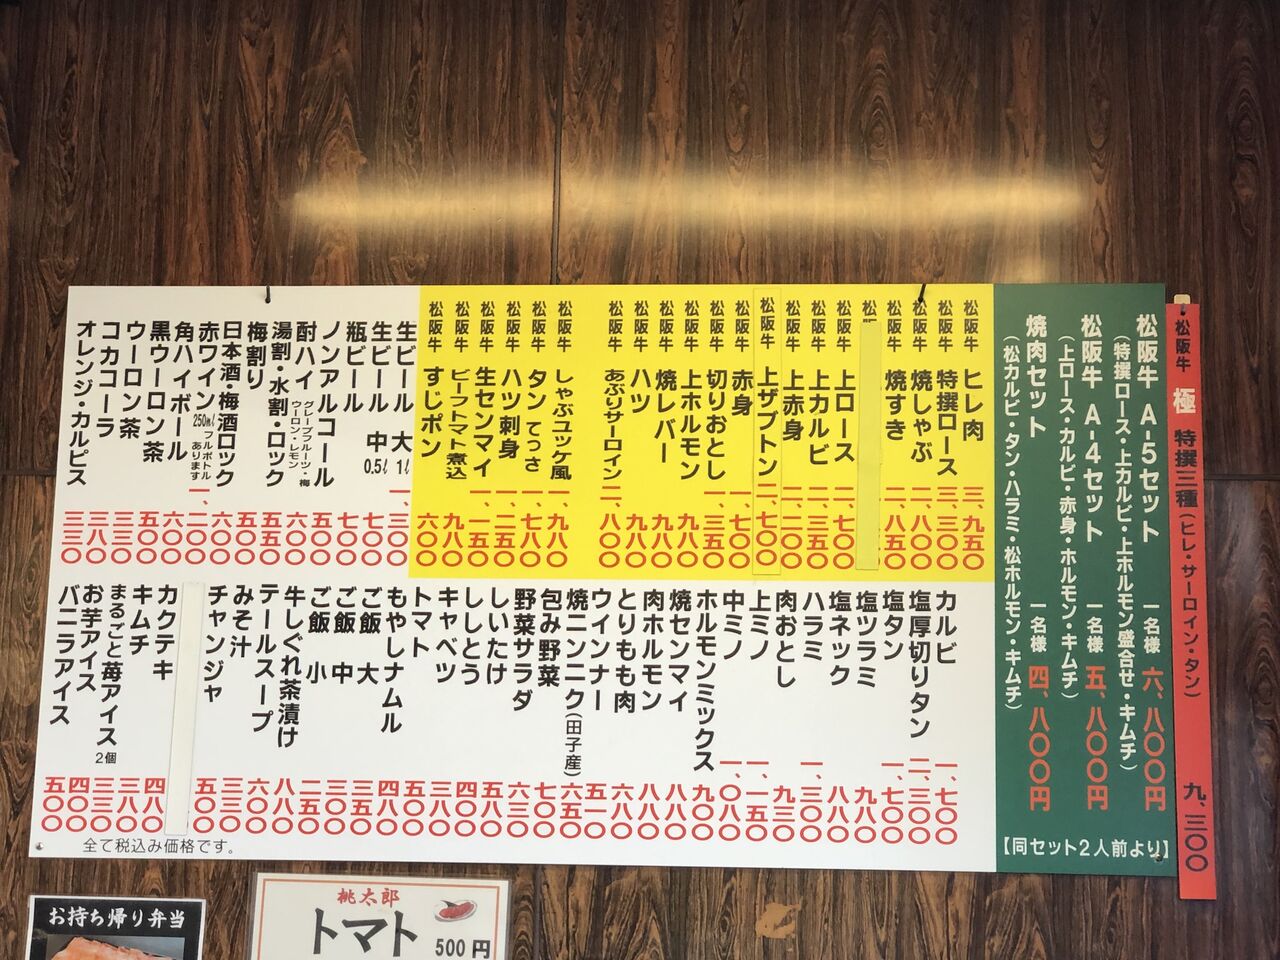 松阪牛 極 特撰三種(ヒレ・サーロイン・タン) 九、三〇〇
松阪牛 A-5セット 一名様 六、八〇〇円
(特撰ロース・上カルビ・上ホルモン盛合せ・キムチ)
松阪牛 A-4セット 一名様 五、八〇〇円
(上ロース・カルビ・赤身・ホルモン・キムチ)
焼肉セット 一名様 四、八〇〇円
(松カルビ・タン・ハラミ・松ホルモン・キムチ)
【同セット2人前より】
松阪牛 ヒレ肉 三、九五〇
松阪牛 特撰ロース 三、三〇〇
松阪牛 焼しゃぶ 二、八五〇
松阪牛 焼すき 二、八五〇
松阪
松阪牛 上ロース 二、七〇〇
松阪牛 上カルビ 二、三五〇
松阪牛 上赤身 二、二〇〇
松阪牛 上ザブトン 二、七〇〇
松阪牛 赤身 一、七〇〇
松阪牛 切りおとし 一、三五〇
松阪牛 上ホルモン 九八〇
松阪牛 焼レバー 九八〇
松阪牛 ハツ 九八〇
松阪牛 あぶりサーロイン 二、八〇〇
松阪牛 しゃぶユッケ風 一、九八〇
松阪牛 タンてっさ 一、七八〇
松阪牛 ハツ刺身 一、一八〇
松阪牛 生センマイ 一、一五〇
松阪牛 ビーフトマト煮込 九八〇
松阪牛 すじポン 六〇〇
生ビール 大 1ℓ 一、三〇〇
生ビール 中 0.5ℓ 七〇〇
瓶ビール 七〇〇
ノンアルコール 五〇〇
酎ハイ グレープフルーツ・梅 ウーロン・レモン 六〇〇
湯割・水割・ロック 五五〇
梅割り 五〇〇
日本酒・梅酒ロック 六〇〇
赤ワイン 250㎖ フルボトルあります 一、二〇〇
角ハイボール 六〇〇
黒ウーロン茶 五〇〇
ウーロン茶 三三〇
コカコーラ 三八〇
オレンジ・カルピス 三三〇
カルビ 一、七〇〇
塩厚切りタン 二、二〇〇
塩タン 一、七〇〇
塩ツラミ 九八〇
塩ネック 九八〇
ハラミ 一、三〇〇
肉おとし 九三〇
上ミノ 一、一五〇
中ミノ 一、〇八〇
ホルモンミックス 九〇〇
焼センマイ 八八〇
肉ホルモン 八八〇
とりもも肉 六八〇
ウインナー 五一〇
焼ニンニク(田子産) 六五〇
包み野菜 七〇〇
野菜サラダ 六三〇
しいたけ 五〇〇
ししとう 四〇〇
キャベツ 三五〇
トマト 四五〇
もやしナムル 四八〇
ご飯 大 三五〇
ご飯 中 三三〇
ご飯 小 二五〇
牛しぐれ茶漬け 八八〇
テールスープ 六〇〇
みそ汁 三三〇
チャンジャ 五五〇
カクテキ 四八〇
キムチ 三八〇
まるごと苺アイス 2個 三三〇
お芋アイス 四〇〇
バニラアイス 五〇〇
全て税込み価格です。
お持ち帰り弁当
桃太郎
トマト 500円